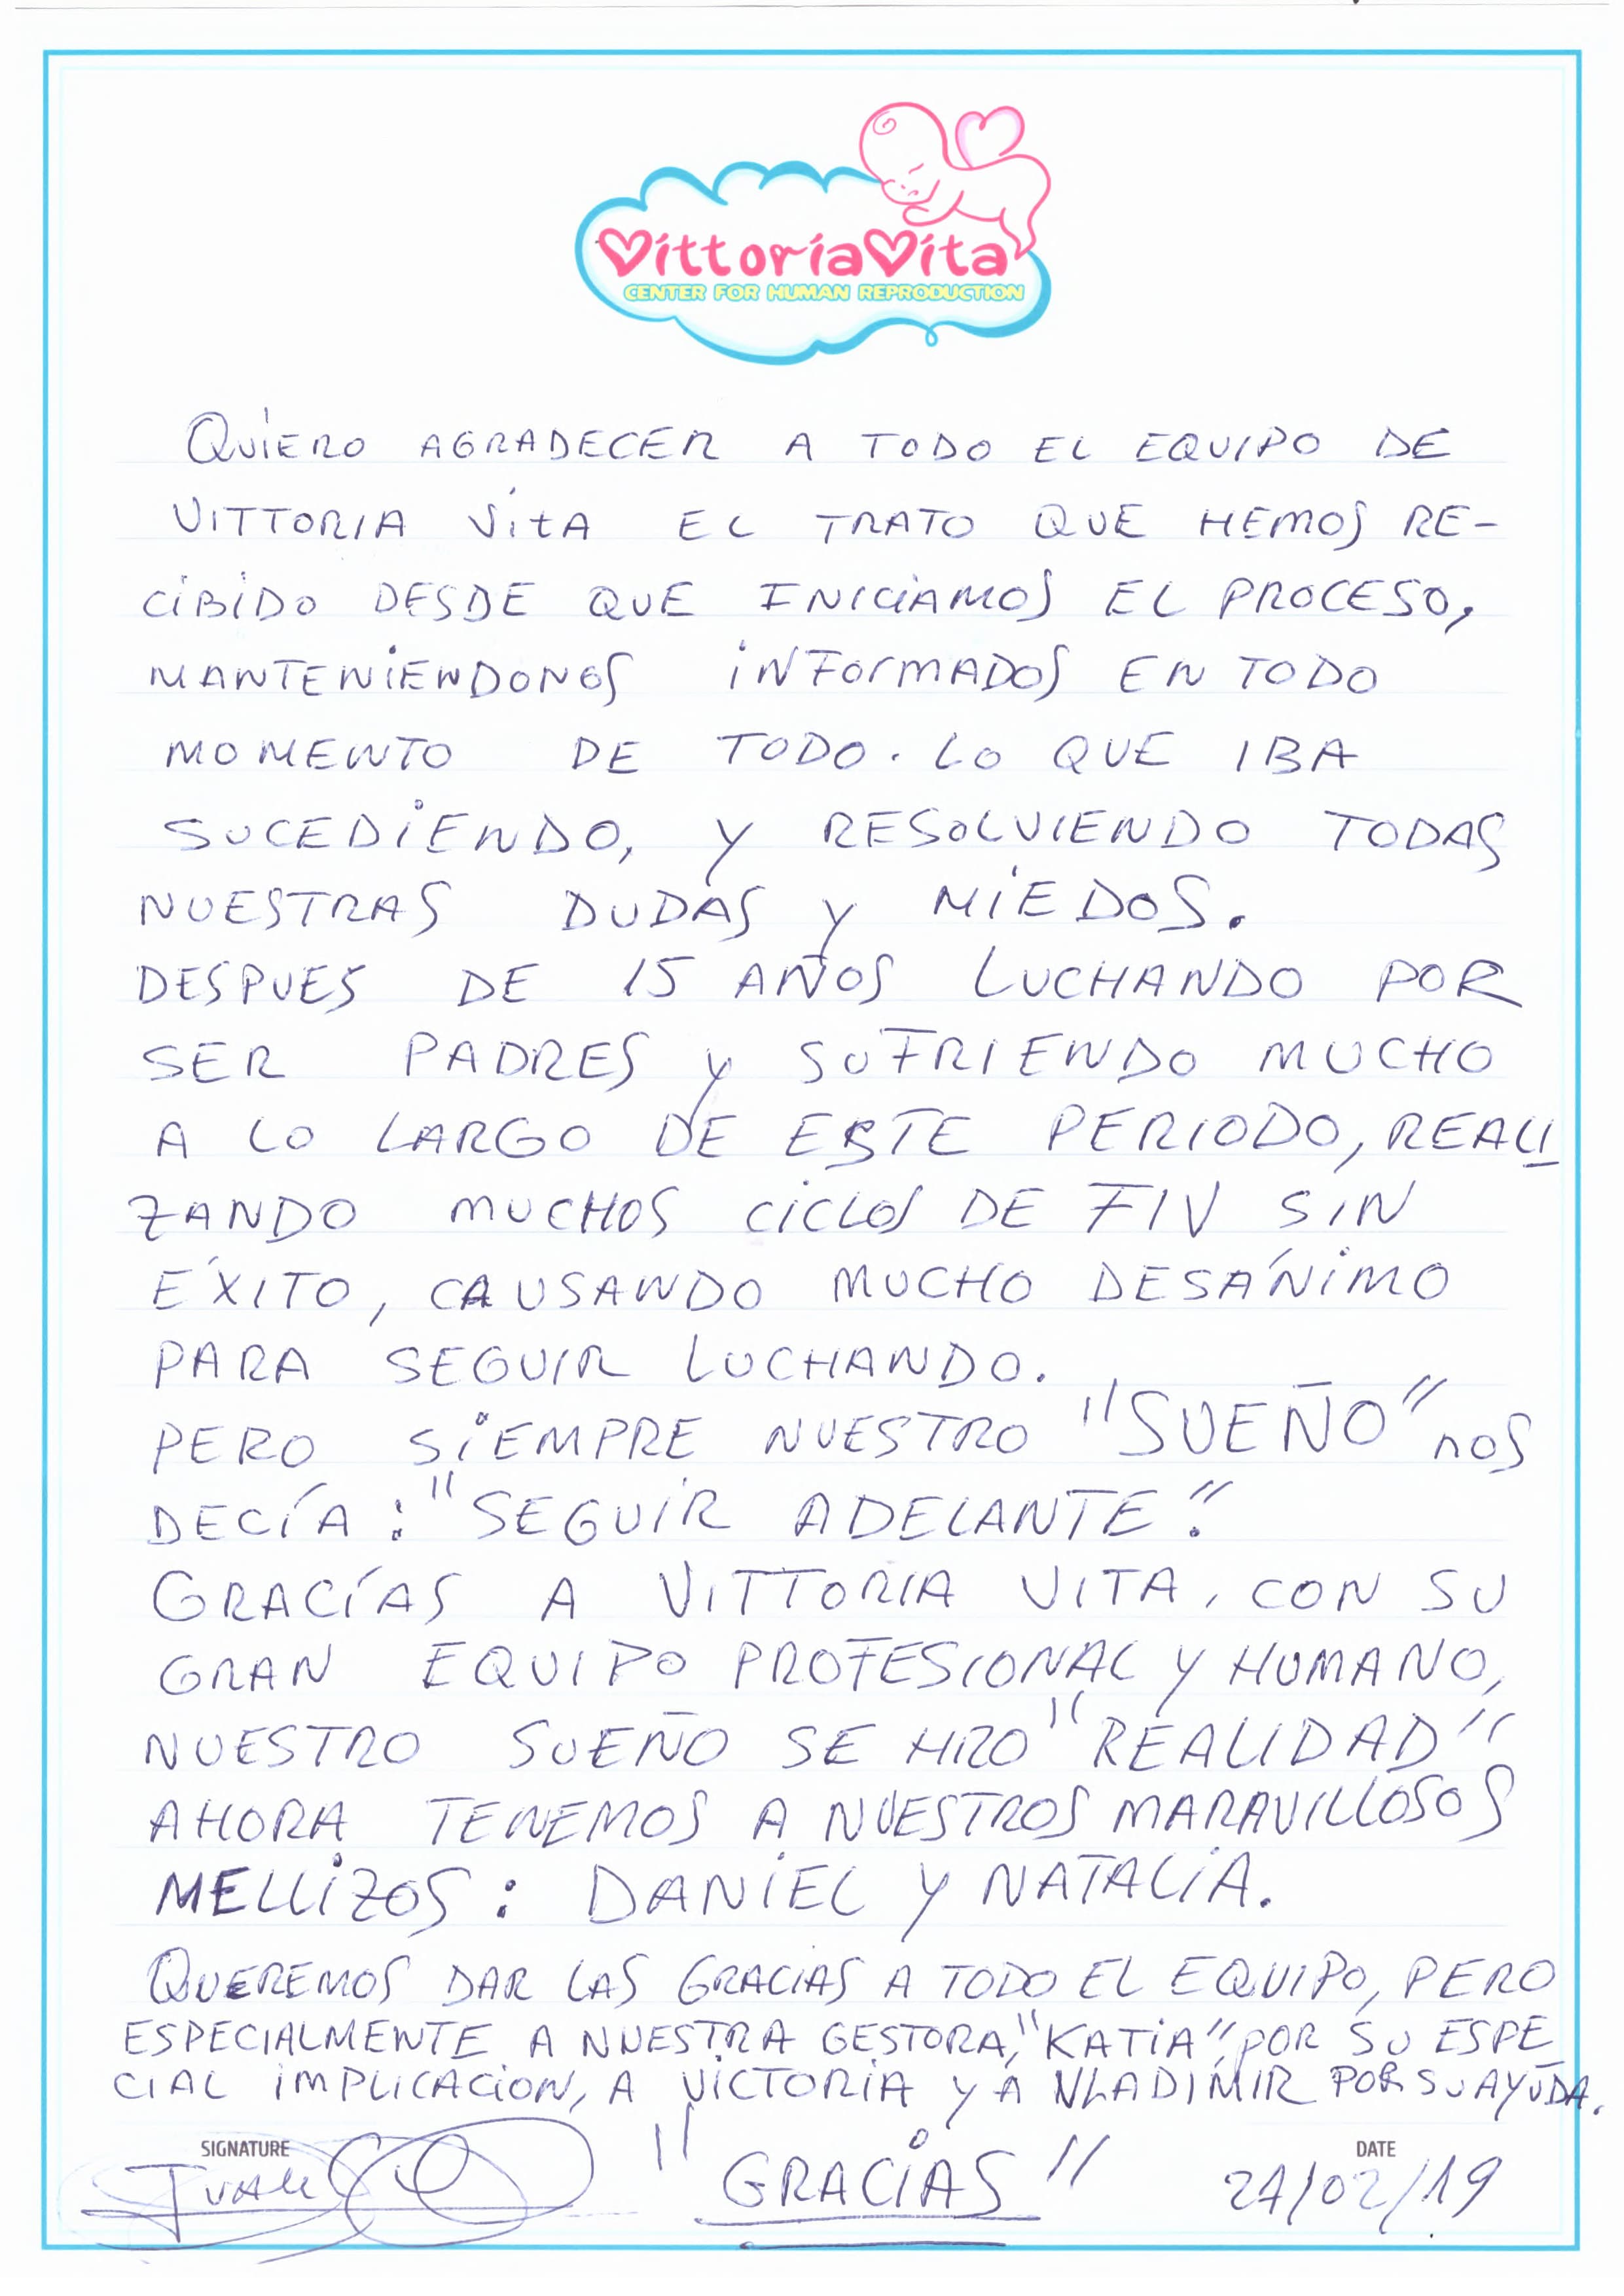 VittoriaVita
CENTER FOR HUMAN REPRODUCTION
QUIERO AGRADECER A TODO EL EQUIPO DE
VITTORIA VITA EL TRATO QUE HEMOS RE-
CIBIDO DESDE QUE INICIAMOS EL PROCESO,
MANTENIENDONOS INFORMADOS EN TODO
MOMENTO DE TODO. LO QUE IBA
SUCEDIENDO, Y RESOLVIENDO TODAS
NUESTRAS DUDAS Y MIEDOS.
DESPUES DE 15 AÑOS LUCHANDO POR
SER PADRES Y SUFRIENDO MUCHO
A LO LARGO DE ESTE PERIODO, REALI
ZANDO MUCHOS CICLOS DE FIV SIN
ÉXITO, CAUSANDO MUCHO DESÁNIMO
PARA SEGUIR LUCHANDO.
PERO SIEMPRE NUESTRO "SUEÑO" nos
DECÍA: "SEGUIR ADELANTE".
GRACÍAS A VITTORIA VITA, CON SU
GRAN EQUIPO PROFESIONAL Y HUMANO,
NUESTRO SUEÑO SE HIZO "REALIDAD"
AHORA TENEMOS A NUESTROS MARAVILLOSOS
MELLIZOS: DANIEL Y NATALIA.
QUEREMOS DAR LAS GRACIAS A TODO EL EQUIPO, PERO
ESPECIALMENTE A NUESTRA GESTORA, "KATIA", POR SU ESPE
CIAL IMPLICACION, A VICTORIA Y A VLADIMIR POR SU AYUDA.
SIGNATURE DATE
IVAN "GRACIAS" 21/02/19